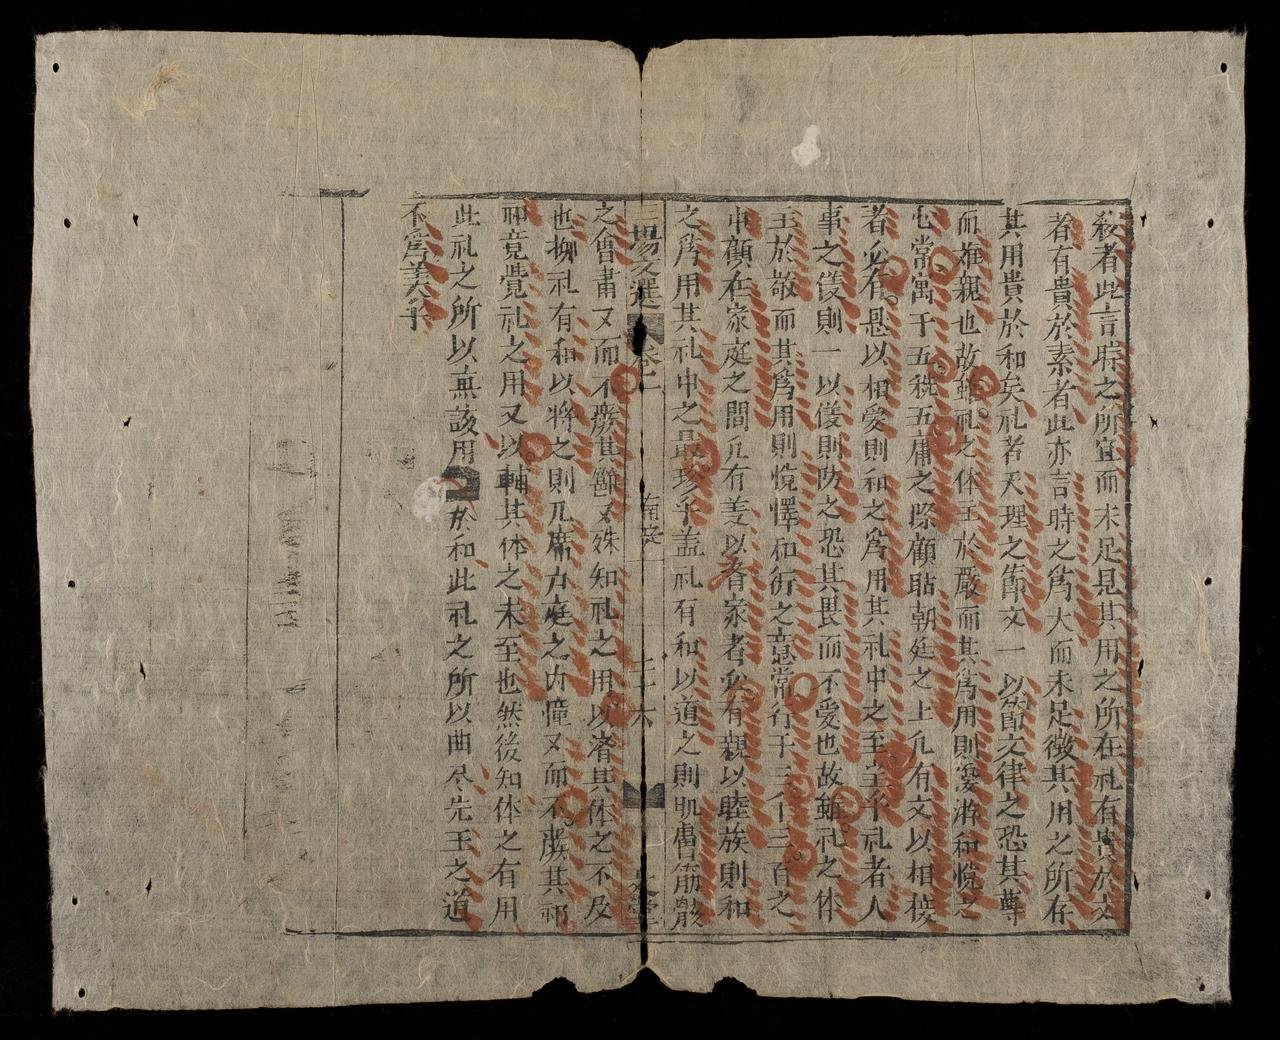 殺者此言時之所宜而未足見其用之所在礼有貴於文
者有貴於素者此亦言時之為大而未足徵其用之所存
其用貴於和矣礼者天理之節文一以節文律之恐其尊
而難親也故雖礼之体主於嚴而其為用則憂游和悅之
心常寓于五秩五庸之際顧瞻朝廷之上凢有文以相接
者必有恩以相愛則和之為用其礼中之至宝乎礼者人
事之儀則一以儀則防之恐其畏而不愛也故雖礼之体
主於敬而其為用則悅懌和衎之意常行于三千三百之
中顧在家庭之間凢有姜以脊家者必有親以睦族則和
之為用其礼中之最珍乎盖礼有和以道之則肌膚筋骸
三場文選 卷二
之會肅又而不厭其
知礼之用以濟其体之不及
也抑礼有和以將之則凢席力庭之内憧又而不厭其祁
祁竟覺礼之用又以輔其体之未至也然後知体之有用
此礼之所以無該用
於和此礼之所以曲尽先王之道
不為美乎